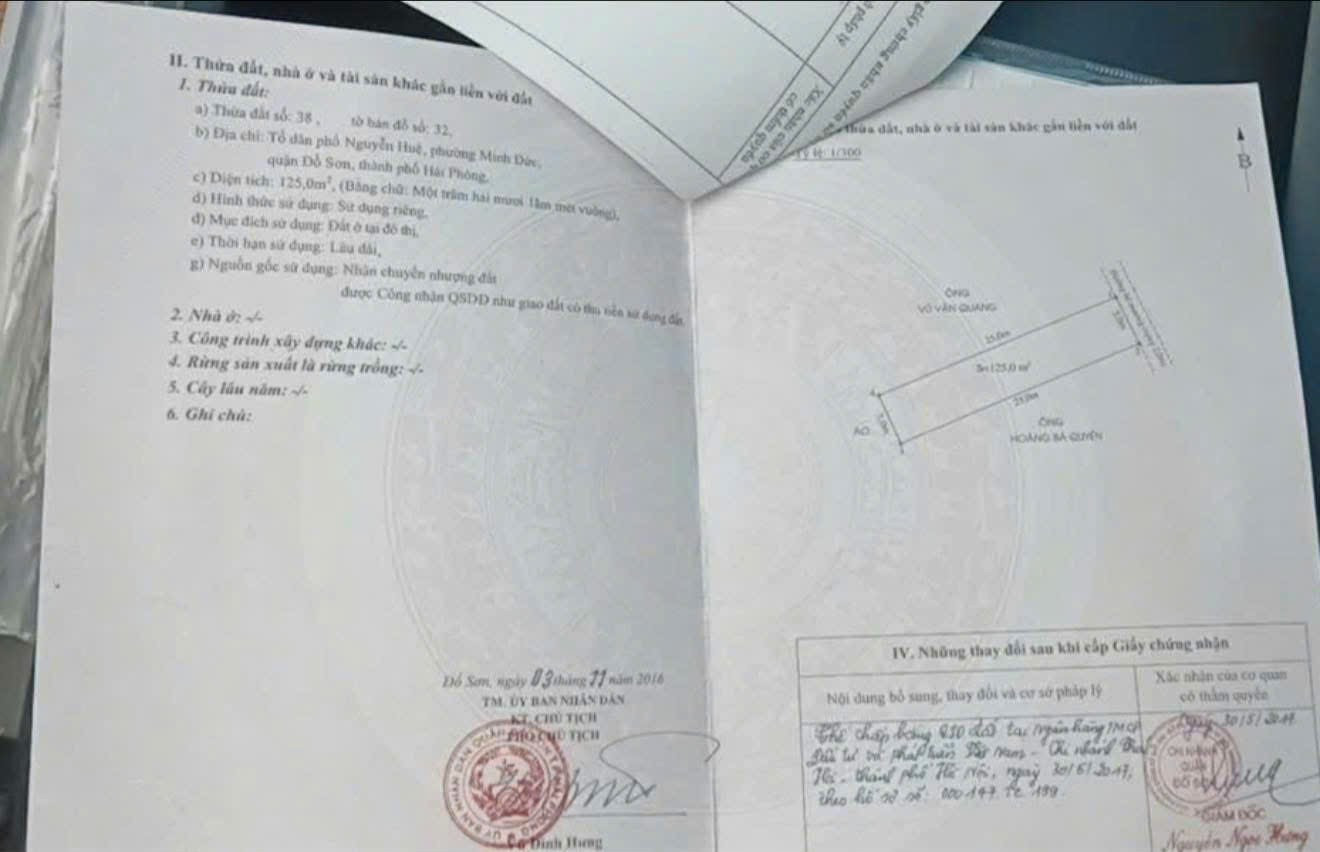 II. Thửa đất, nhà ở và tài sản khác gắn liền với đất
1. Thửa đất:
a) Thửa đất số: 38 , tờ bản đồ số: 32,
b) Địa chỉ: Tổ dân phố Nguyễn Huệ, phường Minh Đức,
quận Đồ Sơn, thành phố Hải Phòng,
c) Diện tích: 125,0m², (Bằng chữ: Một trăm hai mươi lăm mét vuông),
d) Hình thức sử dụng: Sử dụng riêng,
đ) Mục đích sử dụng: Đất ở tại đô thị,
e) Thời hạn sử dụng: Lâu dài,
g) Nguồn gốc sử dụng: Nhận chuyển nhượng đất
được Công nhận QSDĐ như giao đất có thu tiền sử dụng đất.
2. Nhà ở: -/-
3. Công trình xây dựng khác: -/-
4. Rừng sản xuất là rừng trồng: -/-
5. Cây lâu năm: -/-
6. Ghi chú:
Đồ Sơn, ngày 03 tháng 11 năm 2016
TM. ỦY BAN NHÂN DÂN
KT. CHỦ TỊCH
PHÓ CHỦ TỊCH
Đình Hưng
pháp lý
Giấy chứng nhận
Xác nhận của cơ
có thẩm quyền
thửa đất, nhà ở và tài sản khác gắn liền với đất
lệ: 1/300
B
ÔNG
VŨ VĂN QUANG
25,0m
5,0m
S=125,0 m²
25,0m
5,0m
AO
ÔNG
HOÀNG BÁ QUYỀN
IV. Những thay đổi sau khi cấp Giấy chứng nhận
Nội dung bổ sung, thay đổi và cơ sở pháp lý
Xác nhận của cơ quan
có thẩm quyền
Thế chấp bằng QSD đất tại ngân hàng TMCP
Đầu tư và phát triển Việt Nam - Chi nhánh
thành phố Hà Nội, ngày 30/5/2017,
theo hồ sơ số: 000147. TC 199
Ngày 30/5/2017
CHI NHÁNH
QUẬN
ĐỒ SƠN
GIÁM ĐỐC
Nguyễn Ngọc Hưng